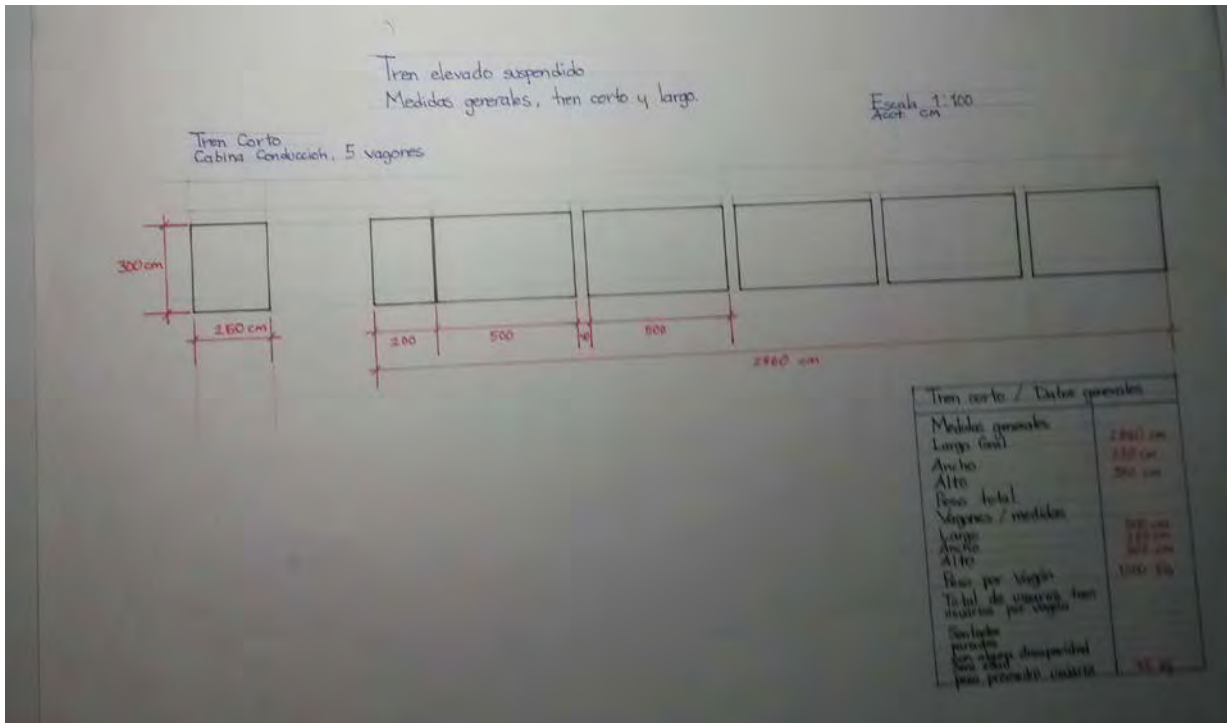 Tren elevado suspendido
Medidas generales, tren corto y largo.
Escala 1:100
Acot. cm
Tren Corto
Cabina Conducción, 5 vagones
300 cm
260 cm
200
500
500
2860 cm
Tren corto / Datos generales
Medidas generales
Largo Gral
2860 cm
Ancho
Alto
300 cm
Peso total
Vagones / medidas
Largo
500 cm
Ancho
Alto
Peso por Vagón
Total de usuarios tren
usuarios por vagón
Sentados
parados
peso promedio usuario